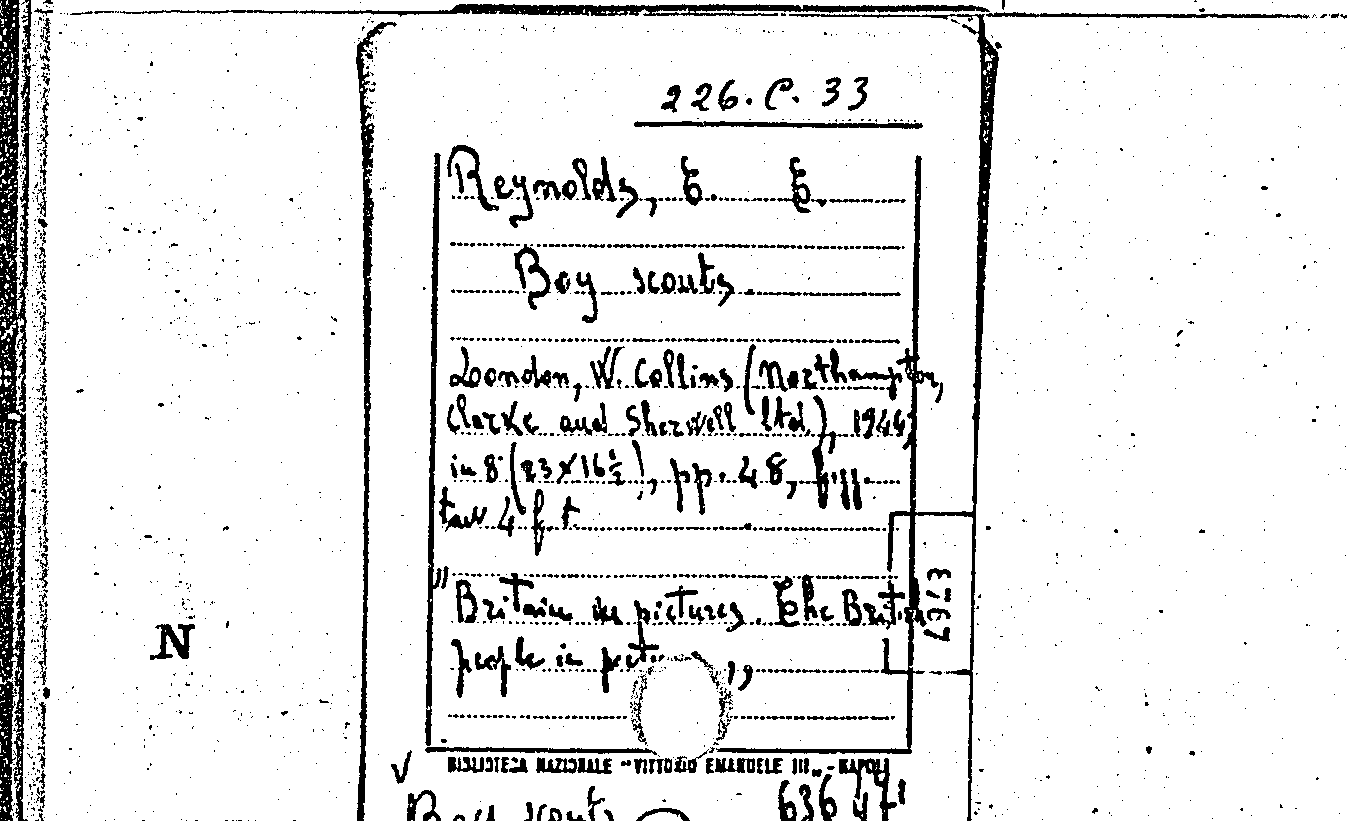 226. C. 33
Reynolds, E. E.
Boy scouts.
London, W. Collins (Northampton,
Clarke and Sherwell ltd.), 1944,
in 8° (23×16½), pp. 48, figg.
tav 4 f. t.
"Britain in pictures. The British
people in
N
BIBLIOTECA NAZIONALE "VITTORIO EMANUELE III" - NAPOLI
Boy scouts